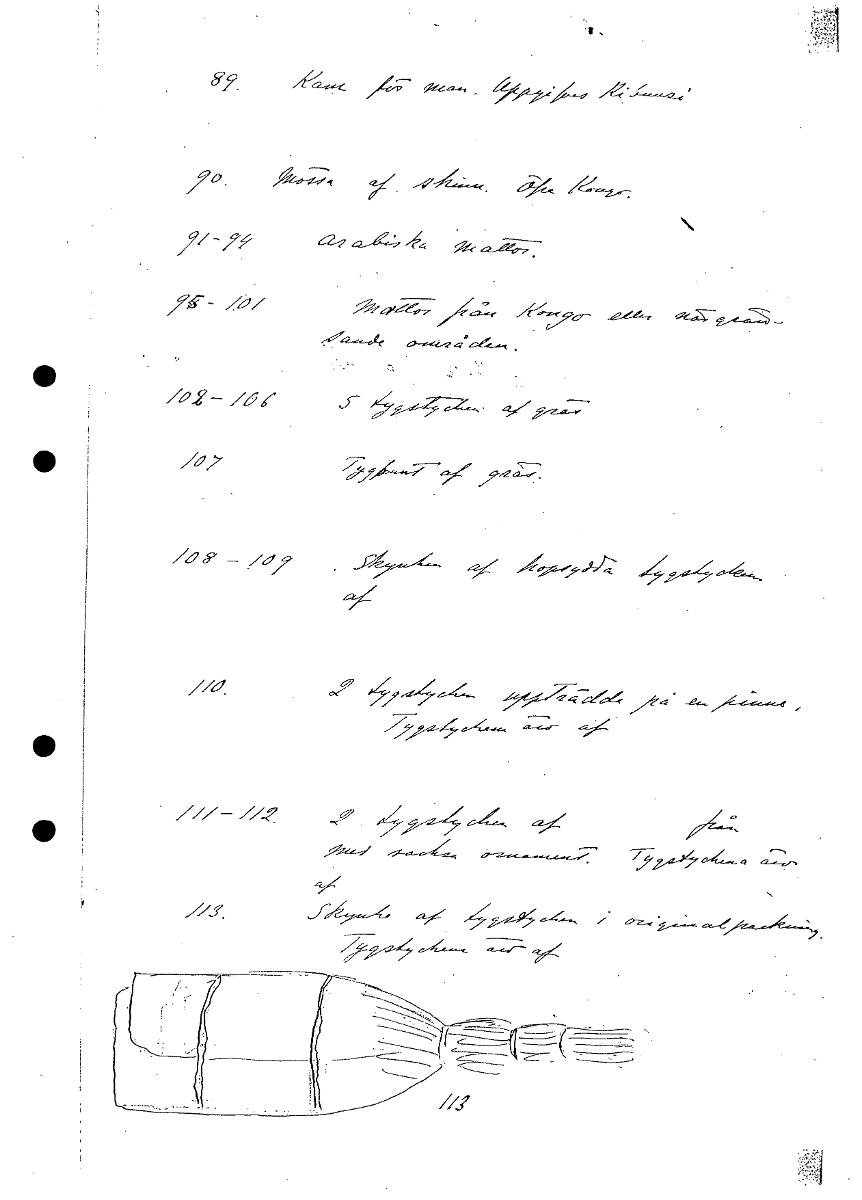 89. Kam för man. Uppgifves Kisunsi
90. Mössa af skinn. Öfre Kongo.
91-94 Arabiska mattor.
95-101 Mattor från Kongo eller närgrän-
sande områden.
102-106 5 tygstycken af gräs
107 Tygbunt af gräs.
108-109 Skynken af hopsydda tygstycken
af
110. 2 tygstycken uppträdda på en pinne.
Tygstyckena äro af
111-112. 2 tygstycken af från
med ornament. Tygstyckena äro
af
113. Skynke af tygstycken i originalpackning.
Tygstyckena äro af
113